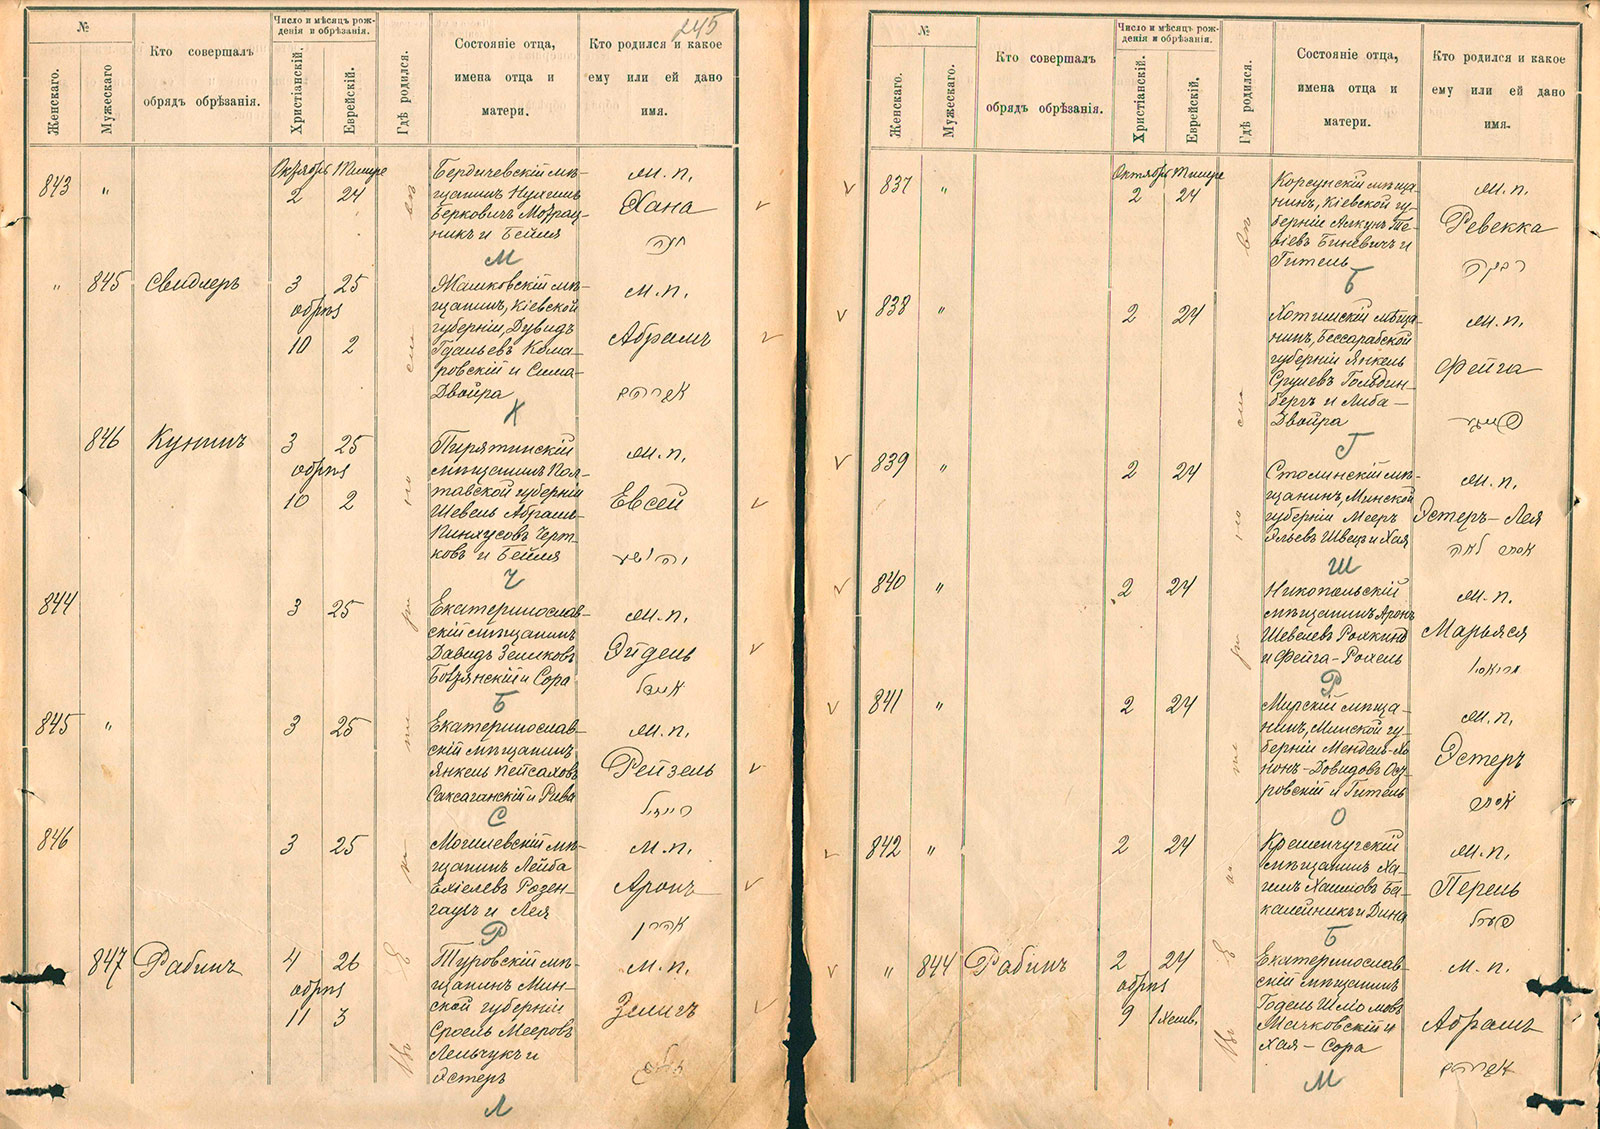 245
№
Женскаго.
Мужескаго
Кто совершалъ
обрядъ обрѣзанія.
Число и мѣсяцъ рож-
денія и обрѣзанія.
Христіанскій.
Еврейскій.
Гдѣ родился.
Состояніе отца,
имена отца и
матери.
Кто родился и какое
ему или ей дано
имя.
843
"
Октябрь Тишре
2 24
Бердичевскій мѣ-
щанинъ Нухимъ
Берковичъ
никъ и Бейля
М
м.п.
Хана
חנה
"
845
Свидлеръ
3 25
обрѣз
10 2
щанинъ, Кіевской
губерніи, Дувидъ
Гдальевъ Кома-
ровскій и Сима-
Двойра
К
м.п.
Абрамъ
אברהם
846
Кунинъ
3 25
обрѣз
10 2
Пирятинскій
мѣщанинъ Пол-
тавской губерніи
Шевель Абрамъ-
Пинхусовъ Черт-
ковъ и Бейля
Ч
м.п.
Евсей
יהושע
844
3 25
Екатеринослав-
скій мѣщанинъ
Давидъ Зеликовъ
и Сора
Б
м.п.
Эйдель
איידל
845
"
3 25
Екатеринослав-
скій мѣщанинъ
Янкель Пейсаховъ
Саксаганскій и Рива
С
м.п.
Рейзель
רייזל
846
3 25
Могилевскій мѣ-
щанинъ Лейба
Ехіелевъ Розен-
гаузъ и Лея
Р
м.п.
Аронъ
אהרן
847
Рабинъ
4 26
обрѣз
11 3
Туровскій мѣ-
щанинъ Мин-
ской губерніи
Сроель Мееровъ
Лельчукъ и
Эстеръ
Л
м.п.
Зеликъ
Въ Екатеринославѣ
№
Женскаго.
Мужескаго.
Кто совершалъ
обрядъ обрѣзанія.
Число и мѣсяцъ рож-
денія и обрѣзанія.
Христіанскій.
Еврейскій,
Гдѣ родился.
Состояніе отца,
имена отца и
матери.
Кто родился и какое
ему или ей дано
имя.
837
"
Октябрь Тишре
2 24
Корсунскій мѣща-
нинъ, Кіевской гу-
берніи
віевъ Биневичъ и
Гитель
Б
м.п.
Ревекка
רבקה
838
"
2 24
Хотинскій мѣща-
нинъ, Бессарабской
губерніи Янкель
Срулевъ Гольдин-
бергъ и Либа-
Двойра
Г
м.п.
Фейга
פייגע
839
"
2 24
Столинскій мѣ-
щанинъ, Минской
губерніи Мееръ
Эльевъ Швецъ и Хая
Ш
м.п.
Эстеръ-Лея
אסתר לאה
840
"
2 24
Никопольскій
мѣщанинъ Аронъ
Шевелевъ Рохкинд
и Фейга-Рохель
Р
м.п.
Марьяся
841
"
2 24
Мирскій мѣща-
нинъ, Минской гу-
берніи Мендель-Хо
нонъ-Довидовъ Ост-
ровскій и Гитель
О
м.п.
Эстеръ
אסתר
842
"
2 24
Кременчугскій
мѣщанинъ Ха-
имъ Хаимовъ Ба-
калейникъ и Дина
Б
м.п.
Перель
פערל
"
844
Рабинъ
2 24
обрѣз
9 1 Хешв.
Екатеринослав-
скій мѣщанинъ
Годель Шліомовъ
Мачковскій и
Хая-Сора
М
м.п.
Абрамъ
אברהם
Въ Екатеринославѣ